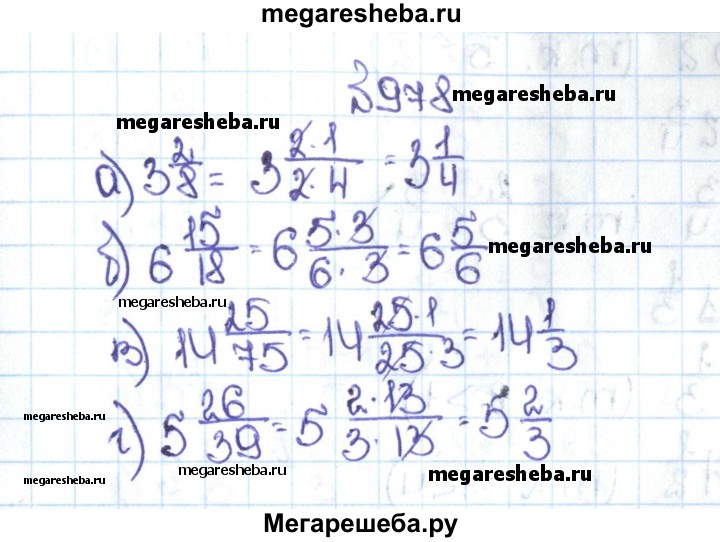 megaresheba.ru
№978 megaresheba.ru
megaresheba.ru
а) 3 2/8 = 3 2·1/2·4 = 3 1/4
б) 6 15/18 = 6 5·3/6·3 = 6 5/6 megaresheba.ru
megaresheba.ru
в) 14 25/75 = 14 25·1/25·3 = 14 1/3
megaresheba.ru
г) 5 26/39 = 5 2·13/3·13 = 5 2/3
megaresheba.ru megaresheba.ru megaresheba.ru
Мегарешеба.ру